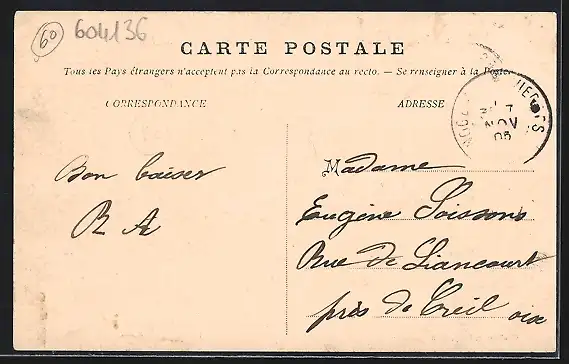 60
604136
CARTE POSTALE
Tous les Pays étrangers n'acceptent pas la Correspondance au recto. — Se renseigner à la Poste.
CORRESPONDANCE
ADRESSE
7
NOV
05
Bon baiser
R A
Madame
Eugène Soissons
Rue de Liancourt
près de Creil oise